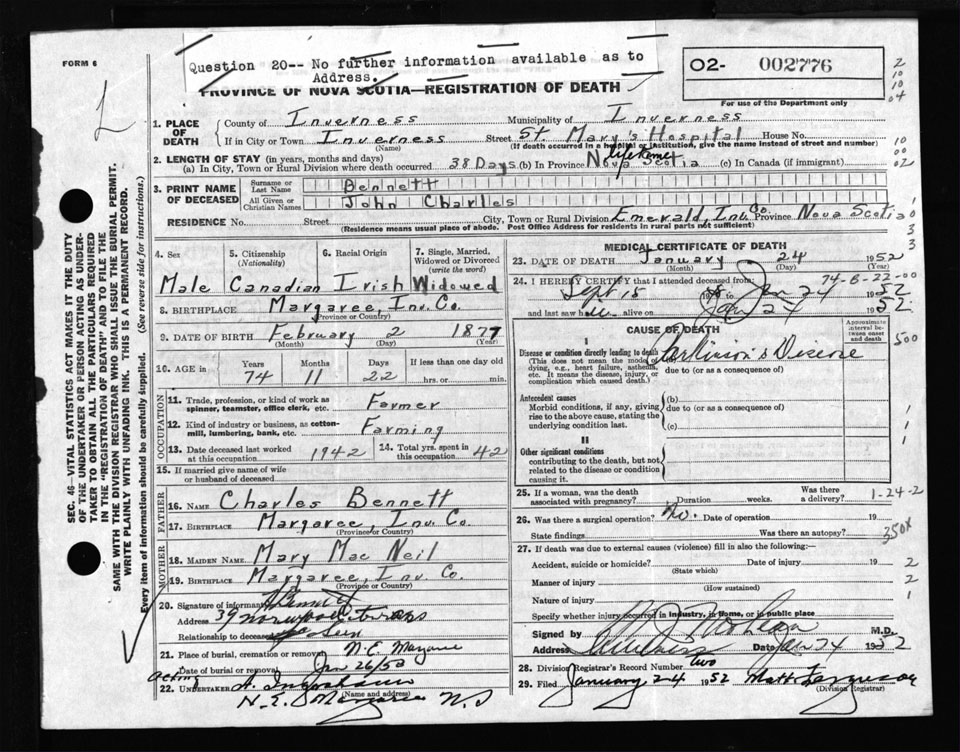 Question 20-- No further information available as to
Address.
FORM 6
02- 002776
For use of the Department only
PROVINCE OF NOVA SCOTIA—REGISTRATION OF DEATH
L
1. PLACE OF DEATH
County of Inverness Municipality of Inverness
If in City or Town Inverness Street St. Mary's Hospital House No.
(Name) (If death occurred in a hospital or institution, give the name instead of street and number)
2. LENGTH OF STAY (in years, months and days)
(a) In City, Town or Rural Division where death occurred 38 Days (b) In Province Nova Scotia lifetime (c) In Canada (if immigrant)
3. PRINT NAME OF DECEASED
Surname or Last Name Bennett
All Given or Christian Names John Charles
RESIDENCE No. Street City, Town or Rural Division Emerald, Inv. Co. Province Nova Scotia
(Residence means usual place of abode. Post Office Address for residents in rural parts not sufficient)
4. Sex 5. Citizenship (Nationality) 6. Racial Origin 7. Single, Married, Widowed or Divorced (write the word)
Male Canadian Irish Widowed
8. BIRTHPLACE Margaree, Inv. Co.
(Province or Country)
9. DATE OF BIRTH February 2 1877
(Month) (Day) (Year)
10. AGE in Years Months Days If less than one day old
74 11 22 hrs. or min.
11. Trade, profession, or kind of work as spinner, teamster, office clerk, etc. Farmer
12. Kind of industry or business, as cotton-mill, lumbering, bank, etc. Farming
13. Date deceased last worked at this occupation 1942 14. Total yrs. spent in this occupation 42
15. If married give name of wife or husband of deceased
FATHER
16. NAME Charles Bennett
17. BIRTHPLACE Margaree, Inv. Co.
(Province or Country)
MOTHER
18. MAIDEN NAME Mary Mac Neil
19. BIRTHPLACE Margaree, Inv. Co.
(Province or Country)
20. Signature of informant
Address 39
Relationship to deceased Son
21. Place of burial, cremation or removal N.E. Margaree
Date of burial or removal Jan 26/52
acting
22. UNDERTAKER A. Ingraham
(Name and address)
N.E. Margaree N.S
MEDICAL CERTIFICATE OF DEATH
23. DATE OF DEATH January 24 1952
(Month) (Day) (Year)
24. I HEREBY CERTIFY that I attended deceased from: 74-8-22-00
Sept 15 Jan 24 1952
and last saw him alive on Jan 24 1952
CAUSE OF DEATH
Approximate interval between onset and death
I
Disease or condition directly leading to death Parkinson's Disease
(This does not mean the mode of dying, e.g., heart failure, asthenia, etc. It means the disease, injury, or complication which caused death.)
due to (or as a consequence of)
Antecedent causes
Morbid conditions, if any, giving rise to the above cause, stating the underlying condition last.
(b)
due to (or as a consequence of)
(c)
II
Other significant conditions
contributing to the death, but not related to the disease or condition causing it.
25. If a woman, was the death associated with pregnancy? Duration weeks. Was there a delivery? 1-24-2
26. Was there a surgical operation? No. Date of operation 19
State findings Was there an autopsy? 350X
27. If death was due to external causes (violence) fill in also the following:—
Accident, suicide or homicide? Date of injury 19
(State which)
Manner of injury
(How sustained)
Nature of injury
Specify whether injury occurred in industry, in home, or in public place
Signed by M.D.
Address Inverness Date Jan 24 1952
28. Division Registrar's Record Number two
29. Filed January 24 1952 Matt. Ferguson
(Division Registrar)
SEC. 46—VITAL STATISTICS ACT MAKES IT THE DUTY
OF THE UNDERTAKER OR PERSON ACTING AS UNDER-
TAKER TO OBTAIN ALL THE PARTICULARS REQUIRED
IN THE "REGISTRATION OF DEATH" AND TO FILE THE
SAME WITH THE DIVISION REGISTRAR WHO SHALL ISSUE THE BURIAL PERMIT.
WRITE PLAINLY WITH UNFADING INK. THIS IS A PERMANENT RECORD.
Every item of information should be carefully supplied. (See reverse side for instructions.)
2
10
10
04
10
00
02
500